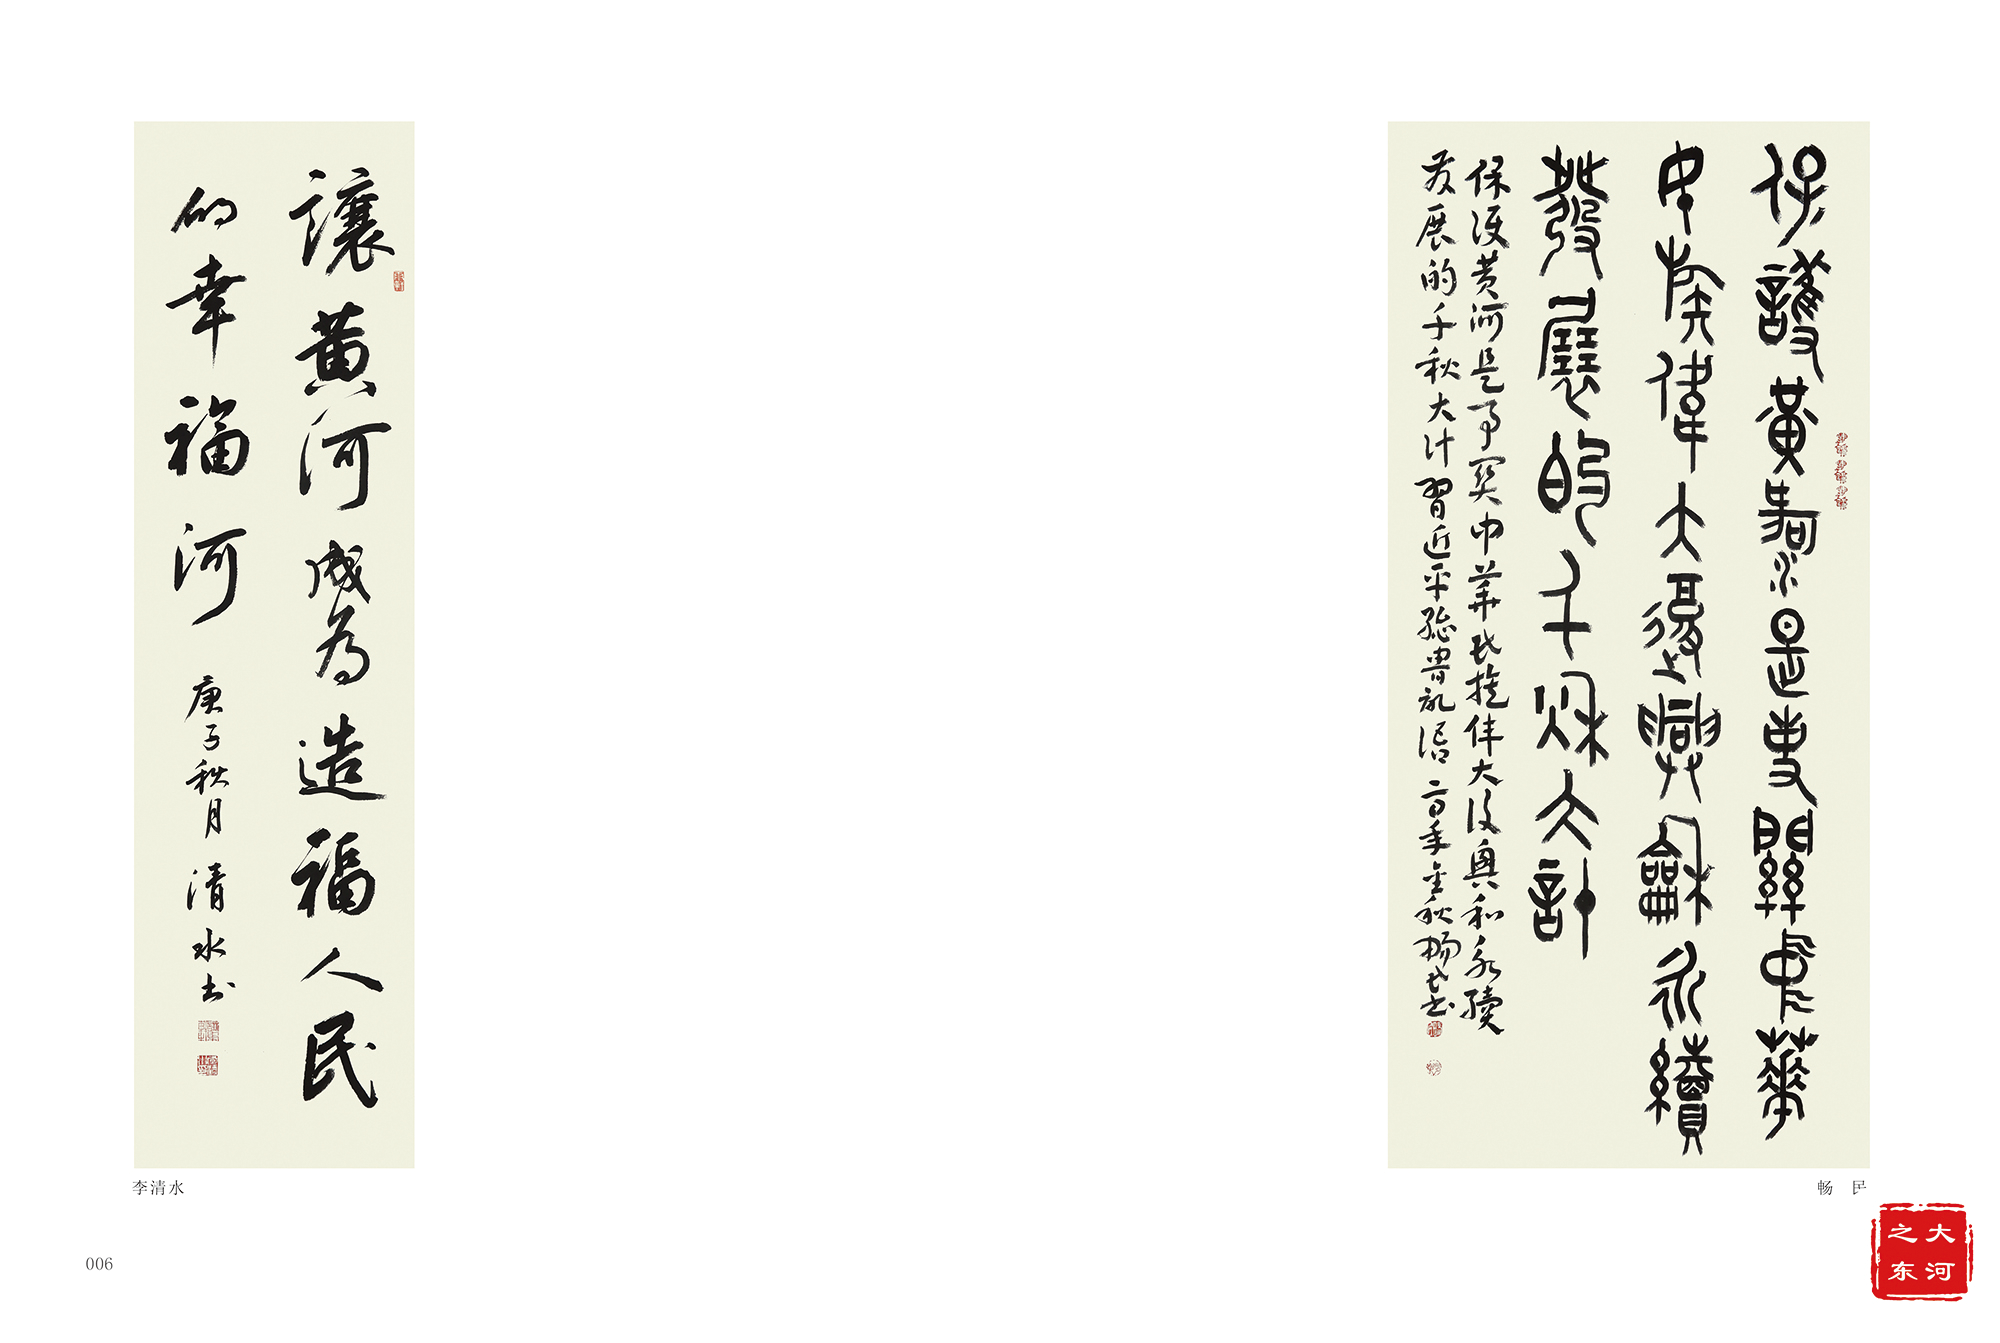 讓黄河成为造福人民
的幸福河
庚子秋月清水书
李清水
006
保護黄河是事關中華
民族偉大復興和永續
發展的千秋大計
保护黄河是事关中华民族伟大复兴和永續
发展的千秋大计習近平總書記语 二〇年金秋畅民书
畅 民
大河
之东